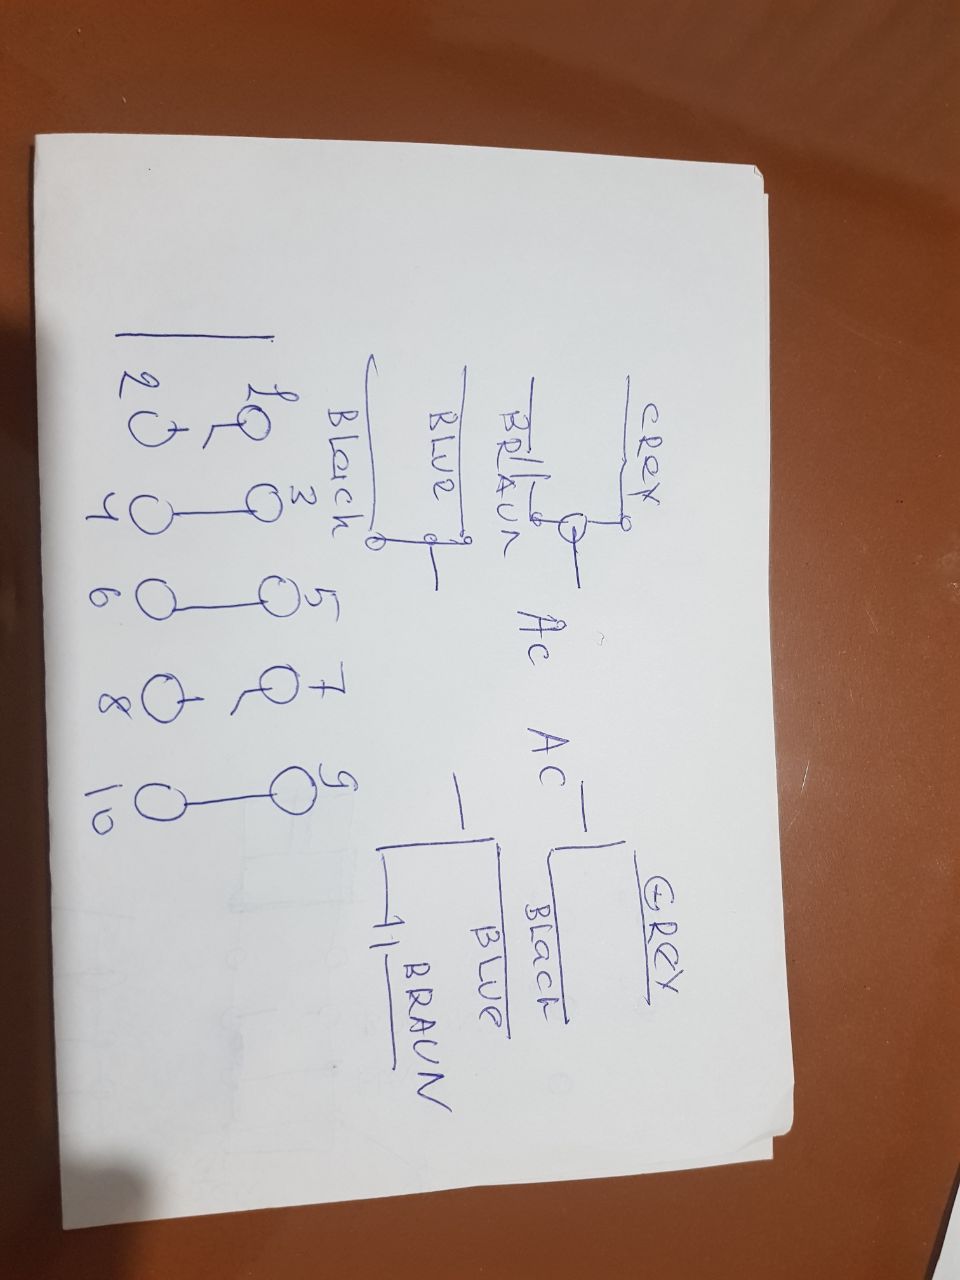 CREY GREY
BRAUN AC AC BLack
BLUe BLUe
BLack BRAUN
1 3 5 7 9
2 4 6 8 10